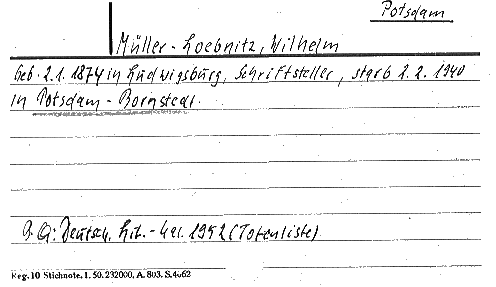 Potsdam
Müller-Loebnitz, Wilhelm
Geb. 2.1.1874 in Ludwigsburg, Schriftsteller, starb 2.2.1940
in Potsdam-Bornstedt.
Q: Deutsch. Lit.-Kal. 1952 (Totenliste)
Reg. 10 Stichnote. 1. 50. 232000, A. 803. S.4662